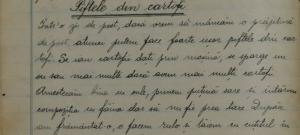 Piftele din cartofi
Într-o zi de post, dacă vrem să mâncăm o prăjitură
de post, atunci putem face foarte ușor piftele din car
tofi. Se iau cartofii dați prin mașină, se sparge un
ou sau mai multe dacă avem mai mulți cartofi.
Amestecăm bine cu oule, punem puțină sare și întărim
compoziția cu făina dar să nu fie prea tare. După ce
am frământat-o, o facem rulo și tăiem cu cuțitul în